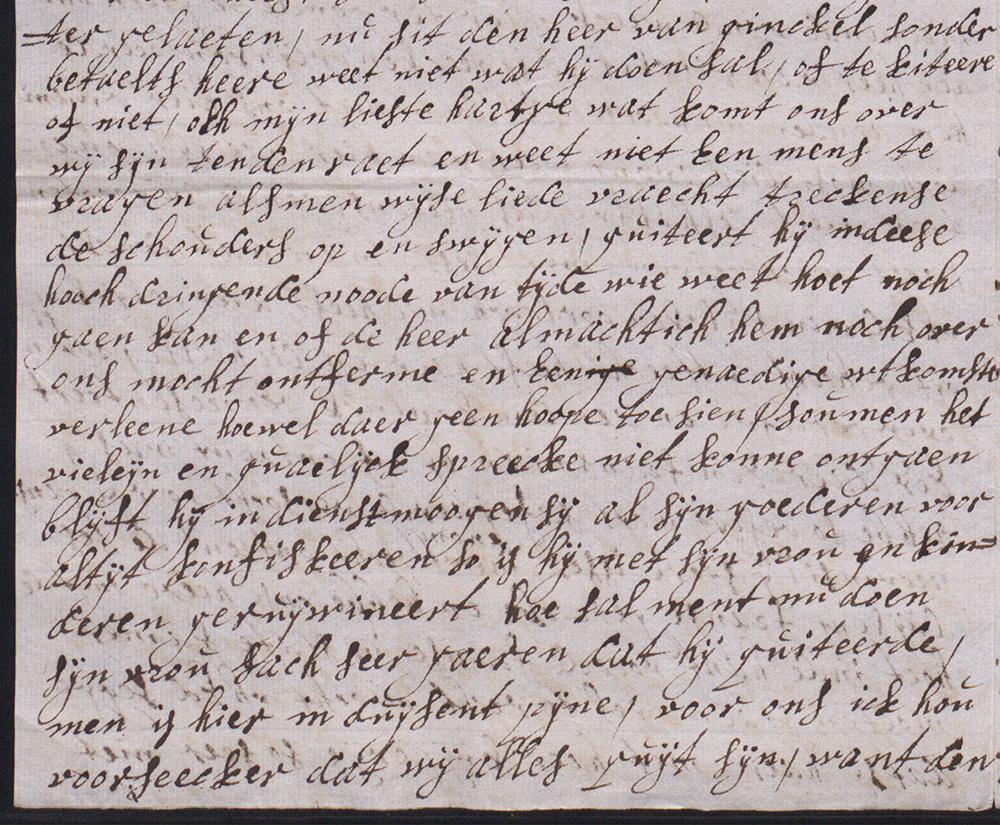 =ter gelaeten / nu sit den heer van ginckel sonder
betaelts heere weet niet wat hy doen sal / of te kiteere
of niet / och myn liefte hartye wat komt ons over
wy syn tenden raet en weet niet een mens te
vragen alsmen wyse liede vraecht treckense
de schouders op en swygen / quiteert hy indeese
hooch dringende noode van tyde wie weet hoet noch
gaen kan en of de heer almachtich hem noch over
ons mocht ontferme en eenige genaedige wtkomste
verleene hoewel daer geen hoope toe sien / soumen het
vieleyn en quaelyck spreecke niet konne ontgaen
blyft hy in dienst moogen sy al syn goederen voor
altyt konfiskeeren so is hy met syn vrou en kin=
deren geruywineert hoe sal ment nu doen
syn vrou sach seer gaeren dat hy quiteerde /
men is hier in duysent pyne / voor ons ick hou
voorseecker dat wy alles quyt syn / want den